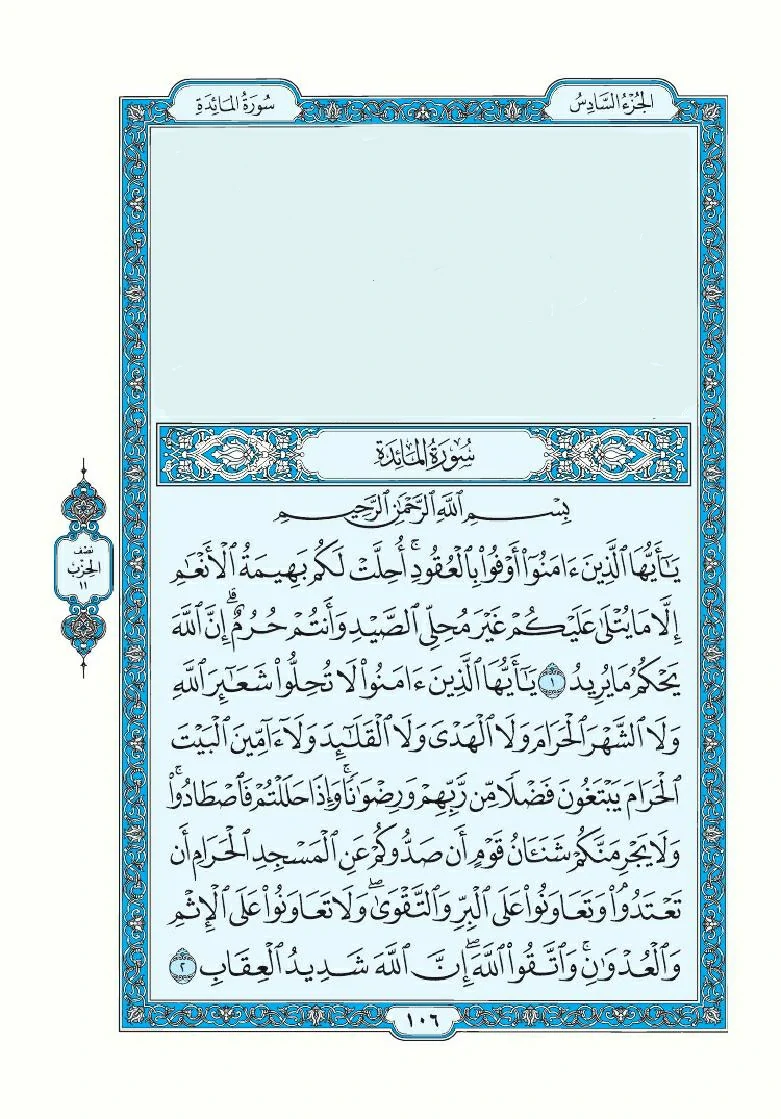 الجُزْءُ السَّادِسُ
سُورَةُ المَائِدَةِ
سُورَةُ المَائِدَةِ
بِسْمِ ٱللَّهِ ٱلرَّحْمَٰنِ ٱلرَّحِيمِ
يَٰٓأَيُّهَا ٱلَّذِينَ ءَامَنُوٓا۟ أَوْفُوا۟ بِٱلْعُقُودِ ۚ أُحِلَّتْ لَكُم بَهِيمَةُ ٱلْأَنْعَٰمِ
إِلَّا مَا يُتْلَىٰ عَلَيْكُمْ غَيْرَ مُحِلِّى ٱلصَّيْدِ وَأَنتُمْ حُرُمٌ ۗ إِنَّ ٱللَّهَ
يَحْكُمُ مَا يُرِيدُ ١ يَٰٓأَيُّهَا ٱلَّذِينَ ءَامَنُوا۟ لَا تُحِلُّوا۟ شَعَٰٓئِرَ ٱللَّهِ
وَلَا ٱلشَّهْرَ ٱلْحَرَامَ وَلَا ٱلْهَدْىَ وَلَا ٱلْقَلَٰٓئِدَ وَلَآ ءَآمِّينَ ٱلْبَيْتَ
ٱلْحَرَامَ يَبْتَغُونَ فَضْلًا مِّن رَّبِّهِمْ وَرِضْوَٰنًا ۚ وَإِذَا حَلَلْتُمْ فَٱصْطَادُوا۟ ۚ
وَلَا يَجْرِمَنَّكُمْ شَنَـَٔانُ قَوْمٍ أَن صَدُّوكُمْ عَنِ ٱلْمَسْجِدِ ٱلْحَرَامِ أَن
تَعْتَدُوا۟ ۘ وَتَعَاوَنُوا۟ عَلَى ٱلْبِرِّ وَٱلتَّقْوَىٰ ۖ وَلَا تَعَاوَنُوا۟ عَلَى ٱلْإِثْمِ
وَٱلْعُدْوَٰنِ ۚ وَٱتَّقُوا۟ ٱللَّهَ ۖ إِنَّ ٱللَّهَ شَدِيدُ ٱلْعِقَابِ ٢
نصف
الحزب
١١
١٠٦